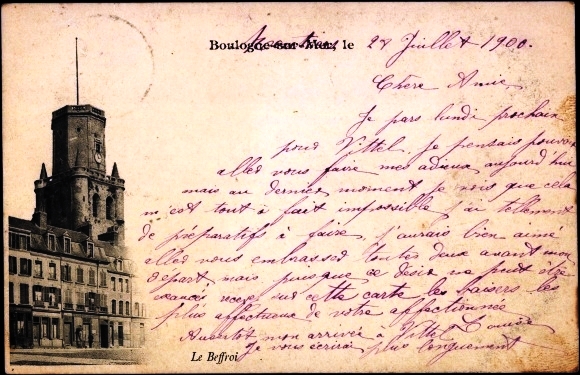 Boulogne-sur-Mer, le 28 Juillet 1900.
Chère Amie
Je pars lundi prochain
pour Vittel, je pensais pouvoir
aller vous faire mes adieux aujourd'hui
mais au dernier moment je vois que cela
m'est tout à fait impossible j'ai tellement
de préparatifs à faire, j'aurais bien aimé
aller vous embrasser toutes deux avant mon
départ mais puisque ce désir ne peut être
exaucé recevez sur cette carte les baisers les
plus affectueux de votre affectionnée
Louise
Aussitôt mon arrivée à Vittel
Je vous écrirai plus longuement
Le Beffroi